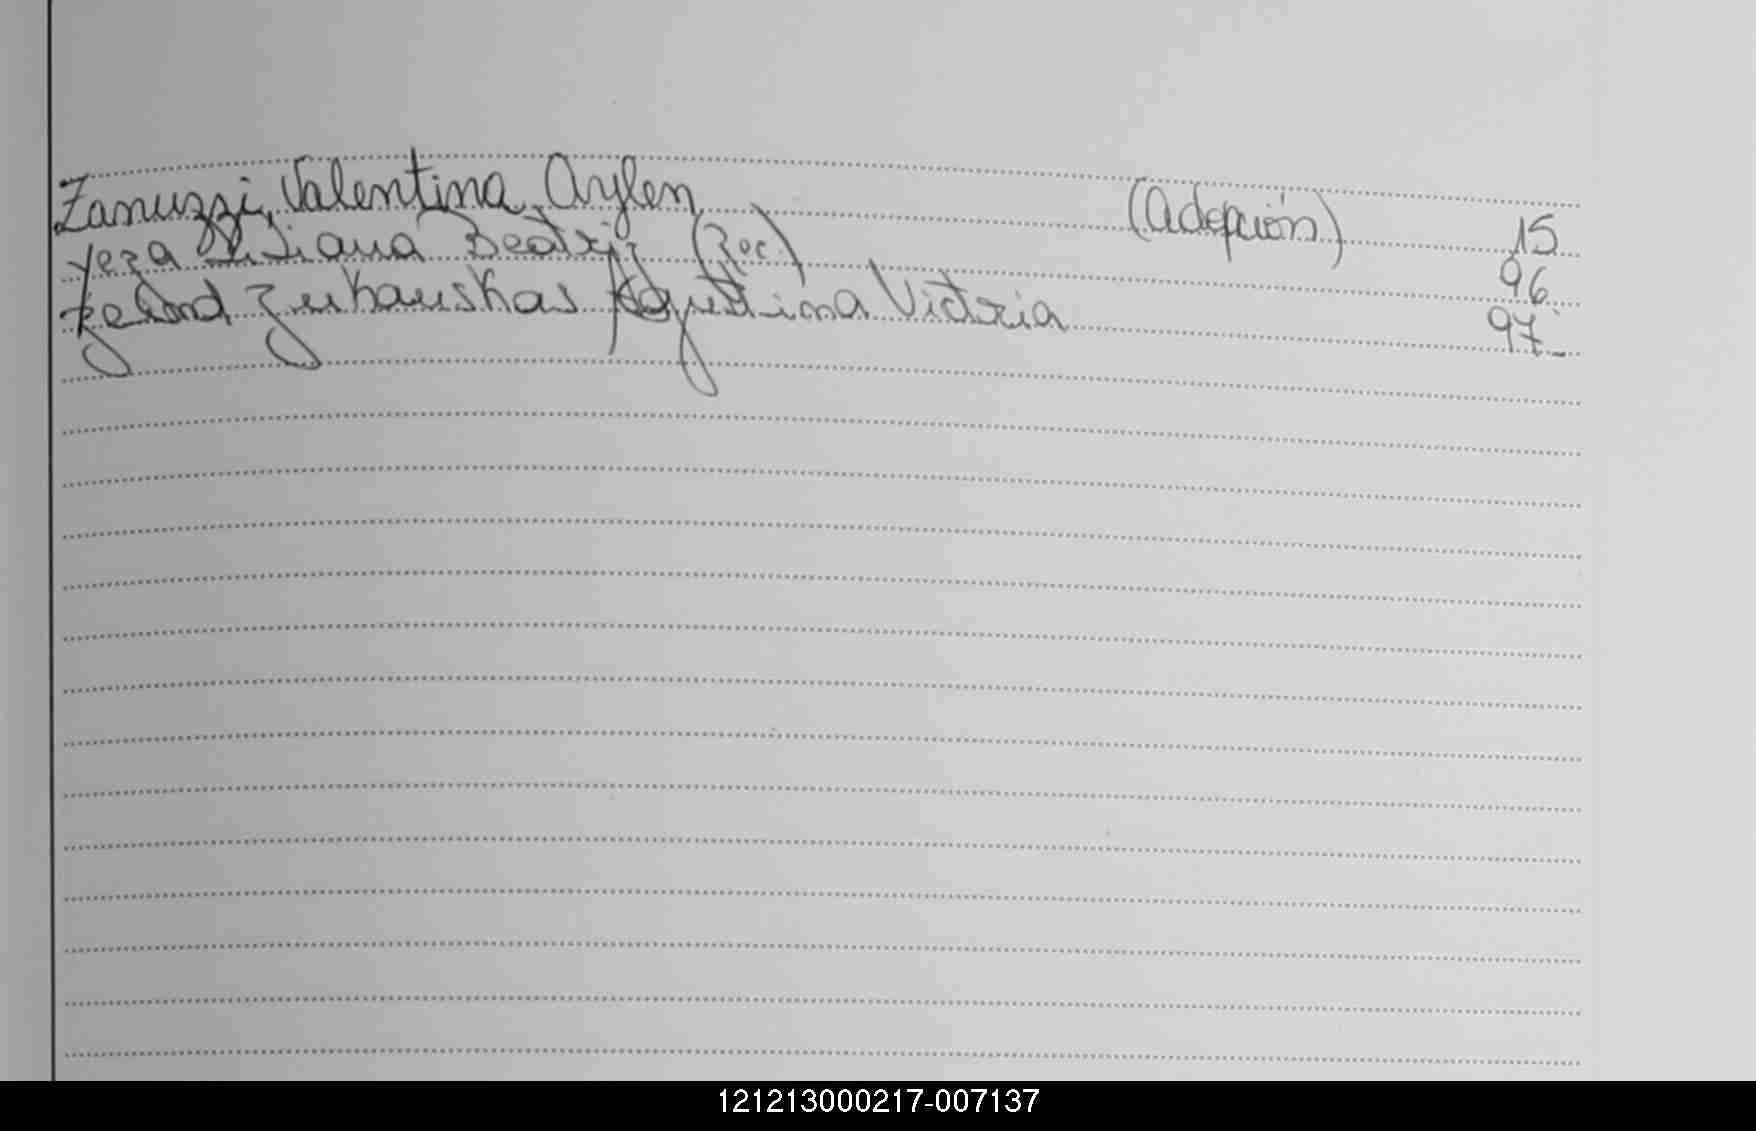 Zanuzzi, Valentina Aylen (Adopción) 15
Yeza Liliana Beatriz (Rec.) 96
Zukauskas Agustina Victoria 97
121213000217-007137